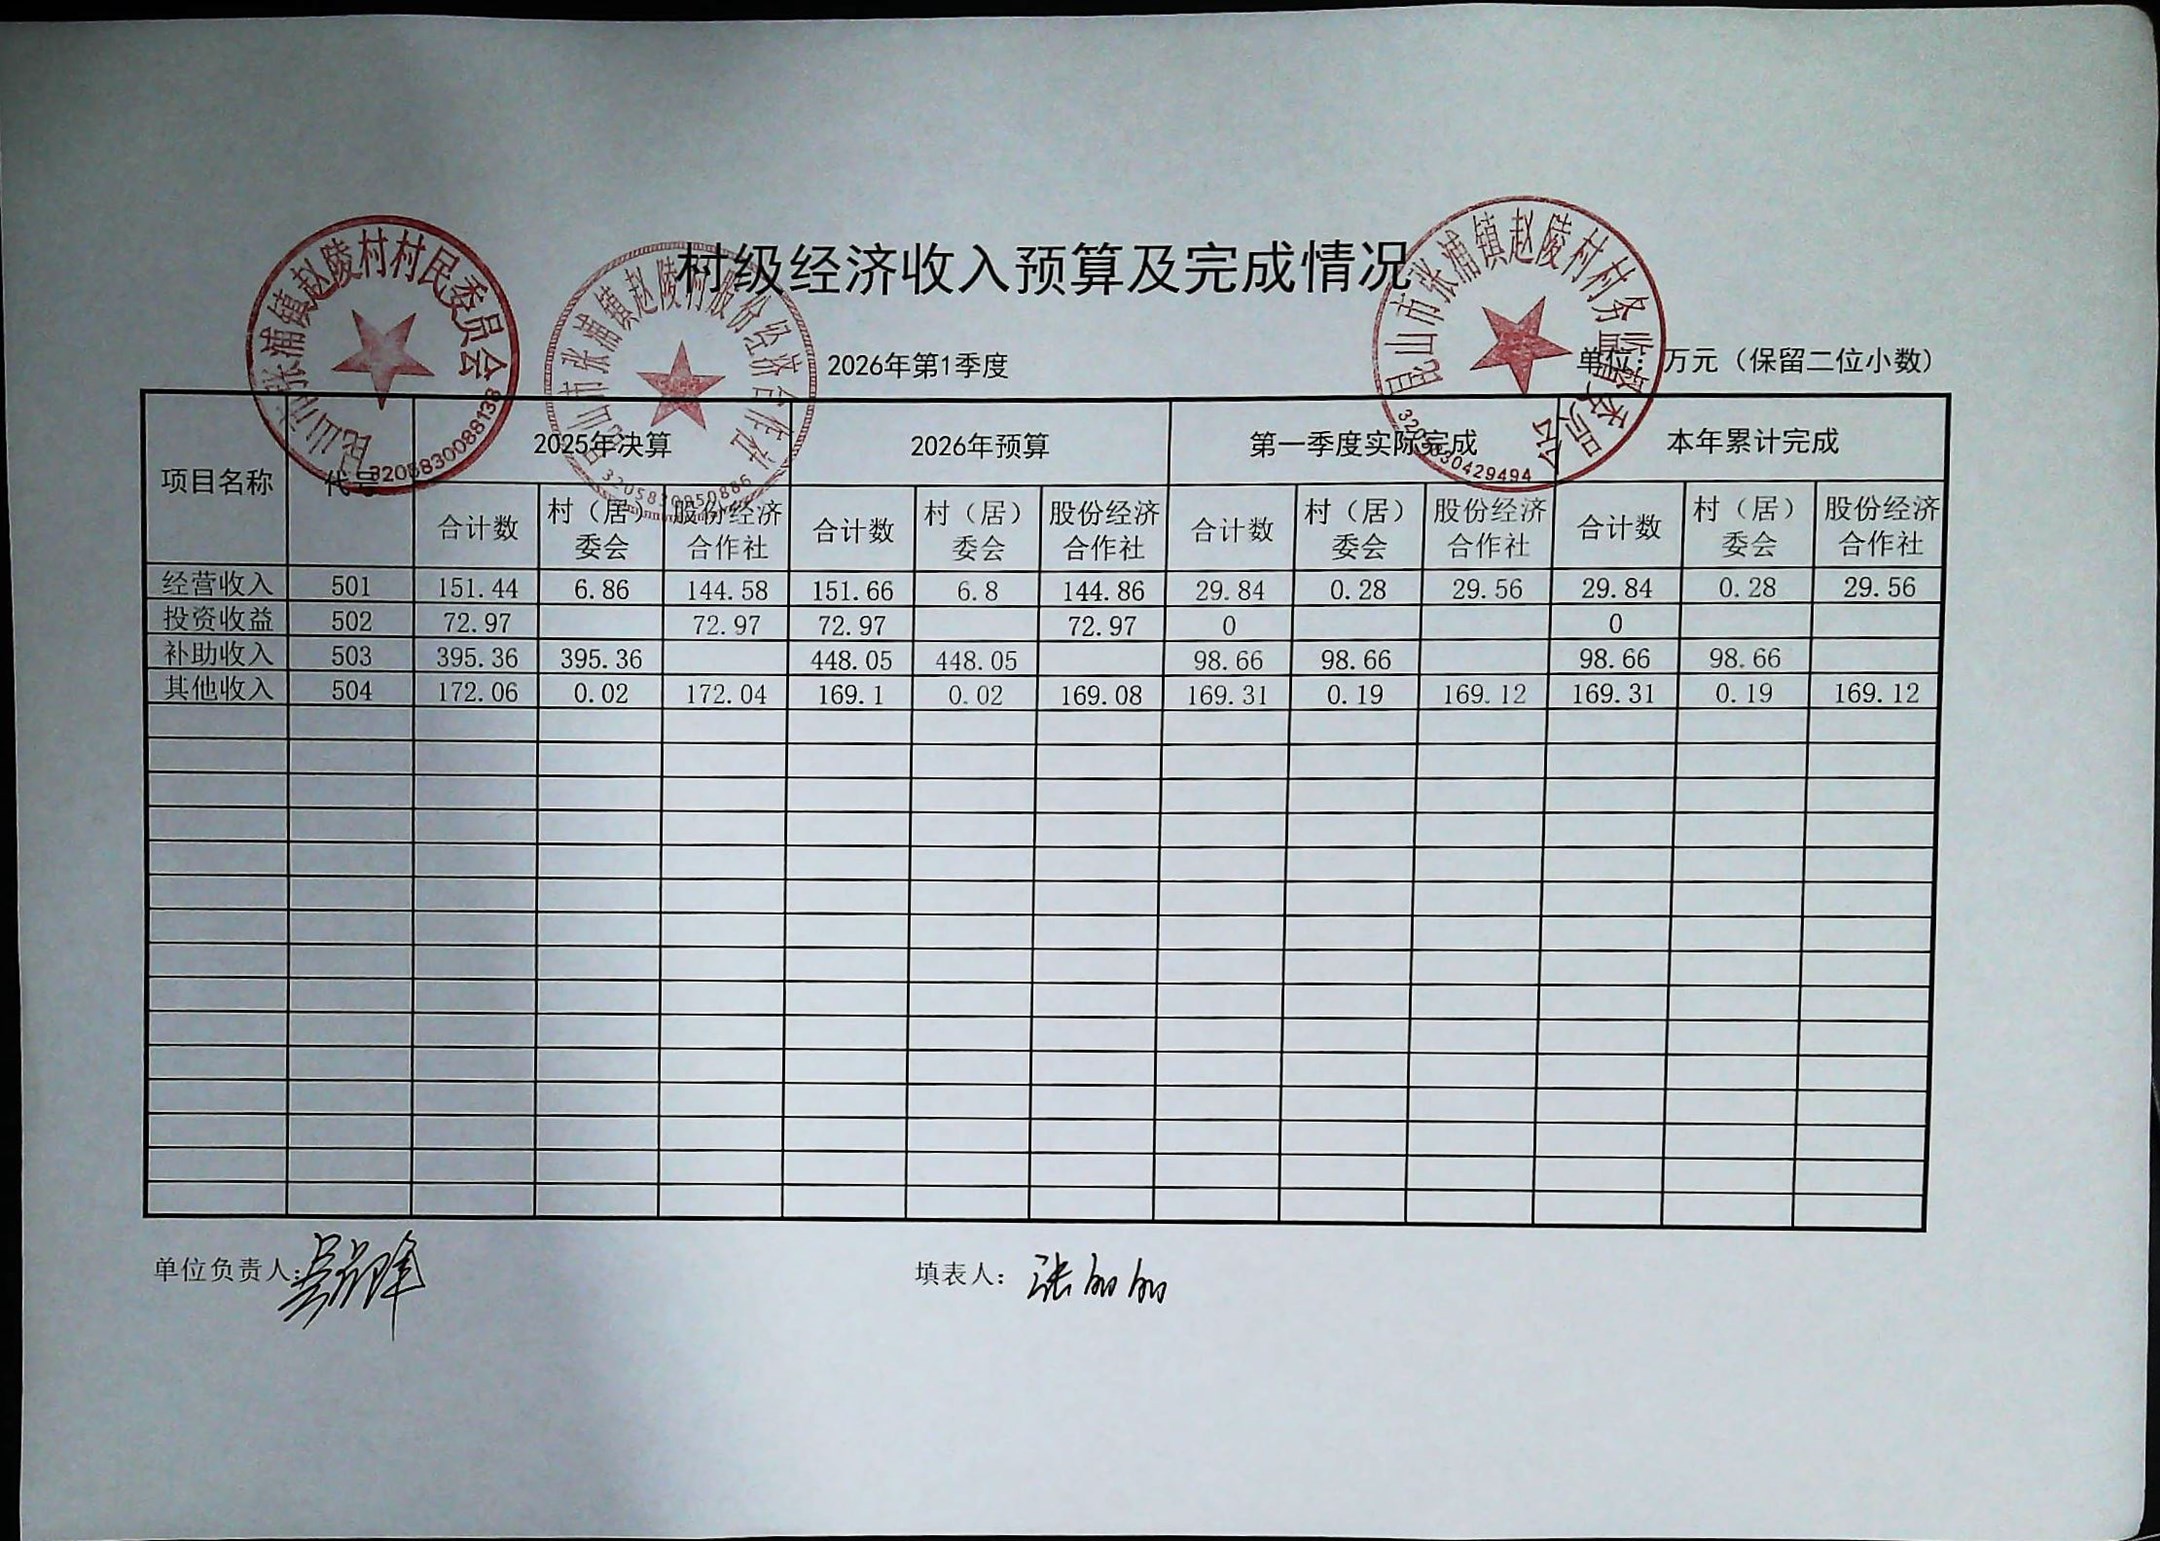 村级经济收入预算及完成情况
2026年第1季度 单位：万元（保留二位小数）
项目名称 代号 2025年决算 2026年预算 第一季度实际完成 本年累计完成
合计数 村（居）委会 股份经济合作社 合计数 村（居）委会 股份经济合作社 合计数 村（居）委会 股份经济合作社 合计数 村（居）委会 股份经济合作社
经营收入 501 151.44 6.86 144.58 151.66 6.8 144.86 29.84 0.28 29.56 29.84 0.28 29.56
投资收益 502 72.97 72.97 72.97 72.97 0 0
补助收入 503 395.36 395.36 448.05 448.05 98.66 98.66 98.66 98.66
其他收入 504 172.06 0.02 172.04 169.1 0.02 169.08 169.31 0.19 169.12 169.31 0.19 169.12
单位负责人： 填表人：张丽丽
昆山市张浦镇赵陵村村民委员会
3205830088138
昆山市张浦镇赵陵村股份经济合作社
3205830950886
昆山市张浦镇赵陵村村务监督委员会
3205830429494